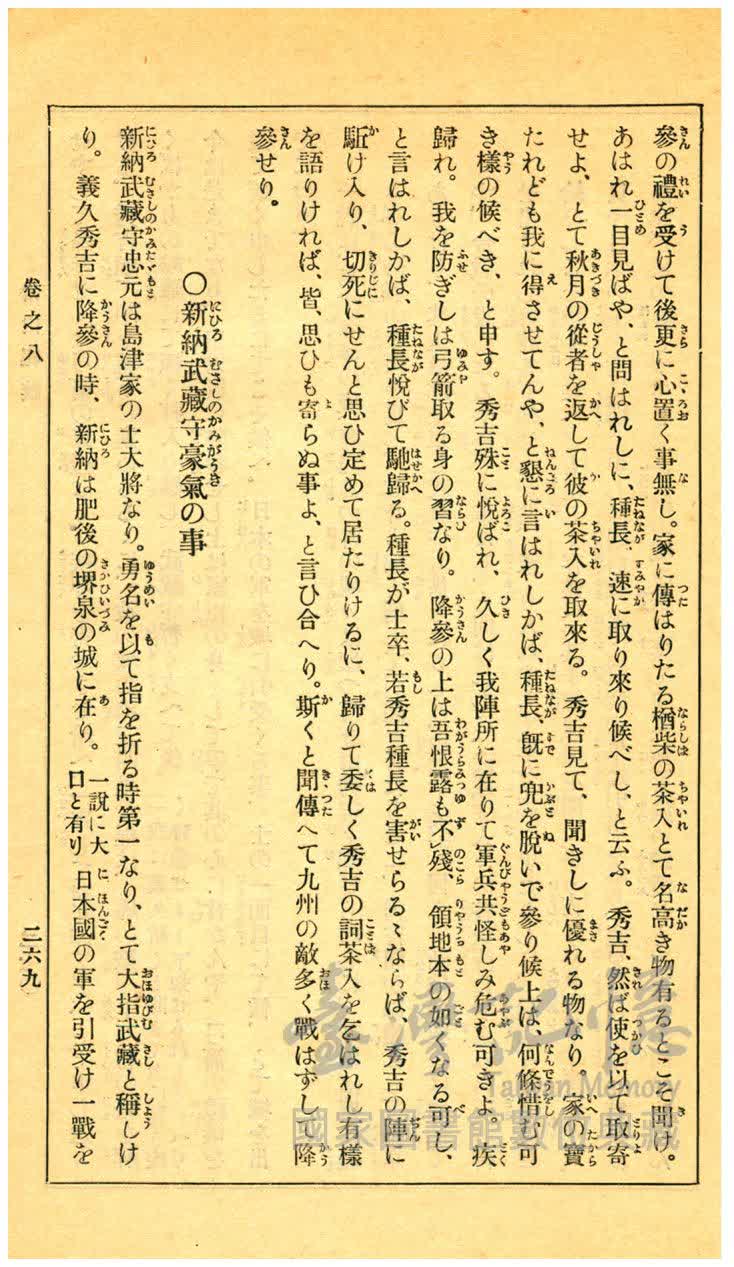 參の禮を受けて後更に心置く事無し。家に傳はりたる楢柴の茶入とて名高き物有るとこそ聞け。
あはれ一目見ばや、と問はれしに、種長、速に取り來り候べし、と云ふ。秀吉、然ば使を以て取寄
せよ、とて秋月の從者を返して彼の茶入を取來る。秀吉見て、聞きしに優れる物なり。家の寶
たれども我に得させてんや、と懇に言はれしかば、種長、既に兜を脫いで參り候上は、何條惜む可
き樣の候べき、と申す。秀吉殊に悅ばれ、久しく我陣所に在りて軍兵共怪しみ危む可きよ。疾
歸れ。我を防ぎしは弓箭取る身の習なり。降參の上は吾恨露も不殘、領地本の如くなる可し、
と言はれしかば、種長悅びて馳歸る。種長が士卒、若秀吉種長を害せらるゝならば、秀吉の陣に
駈け入り、切死にせんと思ひ定めて居たりけるに、歸りて委しく秀吉の詞茶入を乞はれし有樣
を語りければ、皆、思ひも寄らぬ事よ、と言ひ合へり。斯くと聞傳へて九州の敵多く戰はずして降
參せり。
〇新納武藏守豪氣の事
新納武藏守忠元は島津家の士大將なり。勇名を以て指を折る時第一なり、とて大指武藏と稱しけ
り。義久秀吉に降參の時、新納は肥後の堺泉の城に在り。一說に大口と有り日本國の軍を引受け一戰を
卷之八
二六九
臺灣記憶
Taiwan Memory
國家圖書館數位典藏